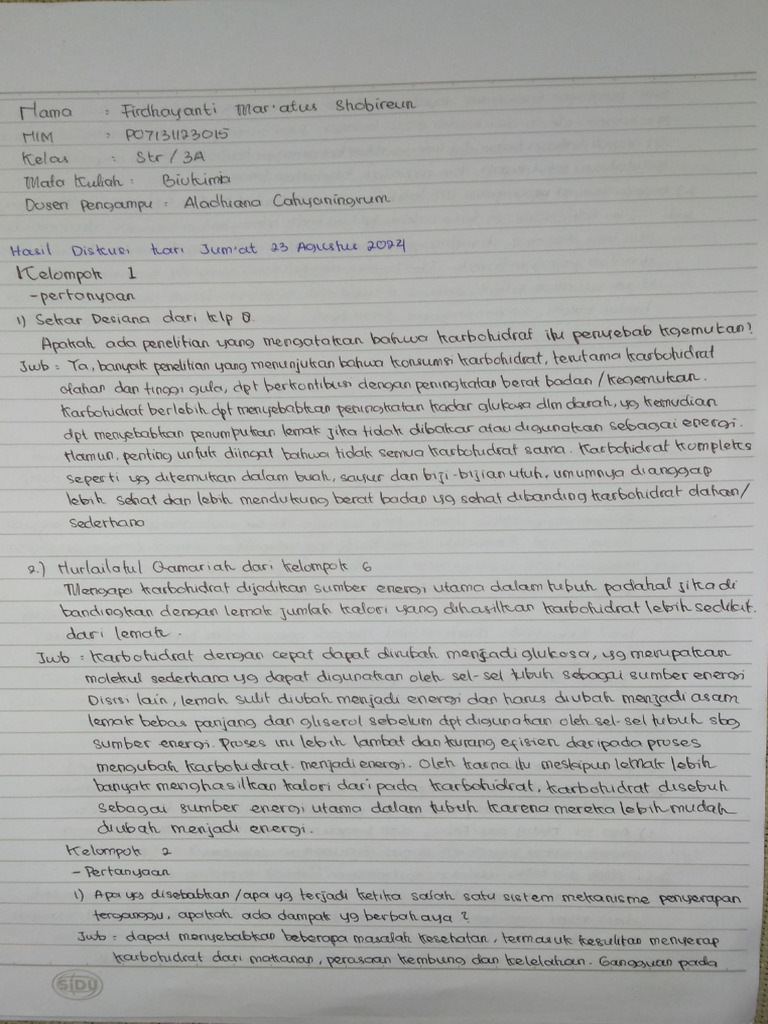 Nama : Firdhayanti Mar'atus Shobireun
NIM : P07131123015
Kelas : Str / 3A
Mata Kuliah : Biokimia
Dosen Pengampu : Aladhiana Cahyaningrum
Hasil Diskusi hari Jum'at 23 Agustus 2024
Kelompok 1
- pertanyaan
1) Sekar Desiana dari klp 8.
Apakah ada penelitian yang mengatakan bahwa karbohidrat itu penyebab kgemukan?
Jwb : Ya, banyak penelitian yang menunjukan bahwa konsumsi karbohidrat, terutama karbohidrat
olahan dan tinggi gula, dpt berkontibusi dengan peningkatan berat badan / kegemukan.
Karbohidrat berlebih dpt menyebabkan peningkatan kadar glukosa dlm darah, yg kemudian
dpt menyebabkan penumpukan lemak jika tidak dibakar atau digunakan sebagai energi.
Namun, penting untuk diingat bahwa tidak semua karbohidrat sama. Karbohidrat kompleks
seperti yg ditemukan dalam buah, sayur dan biji-bijian utuh, umumnya dianggap
lebih sehat dan lebih mendukung berat badan yg sehat dibanding karbohidrat olahan/
sederhana
2.) Nurlailatul Qamariah dari kelompok 6
Mengapa karbohidrat dijadikan sumber energi utama dalam tubuh padahal jika di
bandingkan dengan lemak jumlah kalori yang dihasilkan karbohidrat lebih sedikit
dari lemak.
Jwb : Karbohidrat dengan cepat dapat dirubah menjadi glukosa, yg merupakan
molekul sederhana yg dapat digunakan oleh sel-sel tubuh sebagai sumber energi
Disisi lain, lemak sulit diubah menjadi energi dan harus diubah menjadi asam
lemak bebas panjang dan gliserol sebelum dpt digunakan oleh sel-sel tubuh sbg
sumber energi. Proses ini lebih lambat dan kurang efisien daripada proses
mengubah karbohidrat menjadi energi. Oleh karna itu meskipun lemak lebih
banyak menghasilkan kalori daripada karbohidrat, karbohidrat disebuh
sebagai sumber energi utama dalam tubuh karena mereka lebih mudah
diubah menjadi energi.
Kelompok 2
- Pertanyaan
1) Apa yg disebabkan / apa yg terjadi ketika salah satu sistem mekanisme penyerapan
terganggu, apakah ada dampak yg berbahaya?
Jwb : dapat menyebabkan beberapa masalah kesehatan, termasuk kesulitan menyerap
karbohidrat dari makanan, perasaan kembung dan kelelahan. Gangguan pada
SIDU